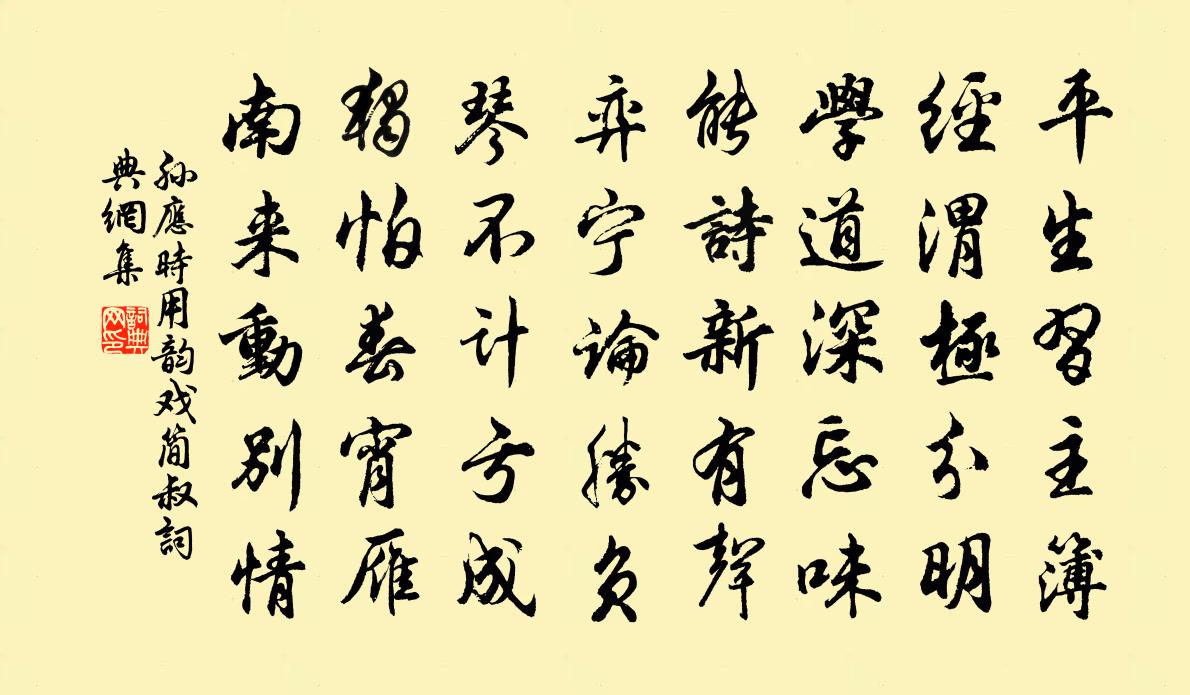 平生習主簿
經渭極分明
學道深忘味
能詩新有聲
弈宁論勝負
琴不计亏成
獨怕春宵雁
南来動别情
孫應時用韵戏简叔詞
典網集
詞典
网印